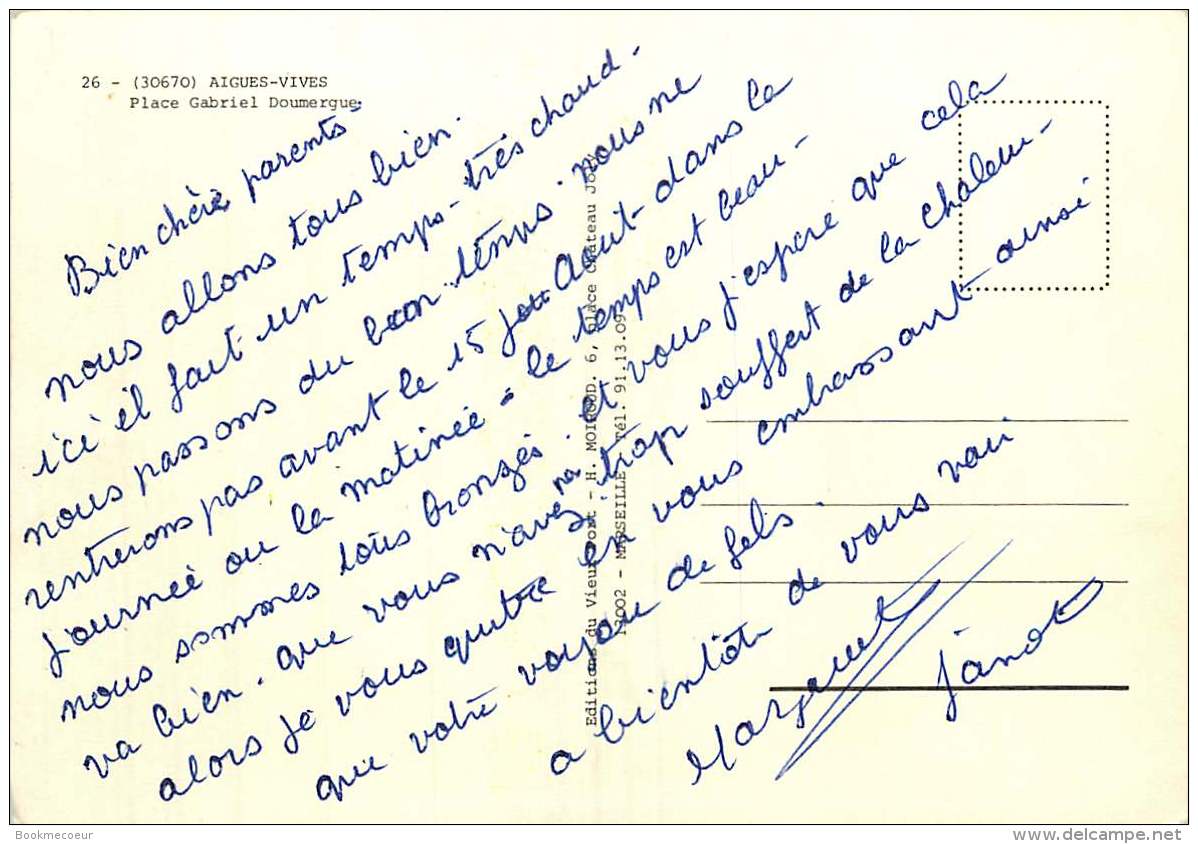 26 - (30670) AIGUES-VIVES
Place Gabriel Doumergue
Bien chère parents -
nous allons tous bien.
ici il fait un temps - très chaud -
nous passons du bon temps. nous ne
rentrerons pas avant le 15 Août - dans la
journée ou la matinée - le temps est beau -
nous sommes tous bronzés. et vous j'espère que cela
va bien. que vous n'avez pas trop souffert de la chaleur -
alors je vous quitte en vous embrassant ainsi
que votre voyou de fels.
a bientôt de vous voir
Margeurit
Janot
Editions du Vieux Port - H. MOIROUD. 6, place Château Joly
13002 - MARSEILLE - Tél. 91.13.09
Bookmecoeur
delcampe.net